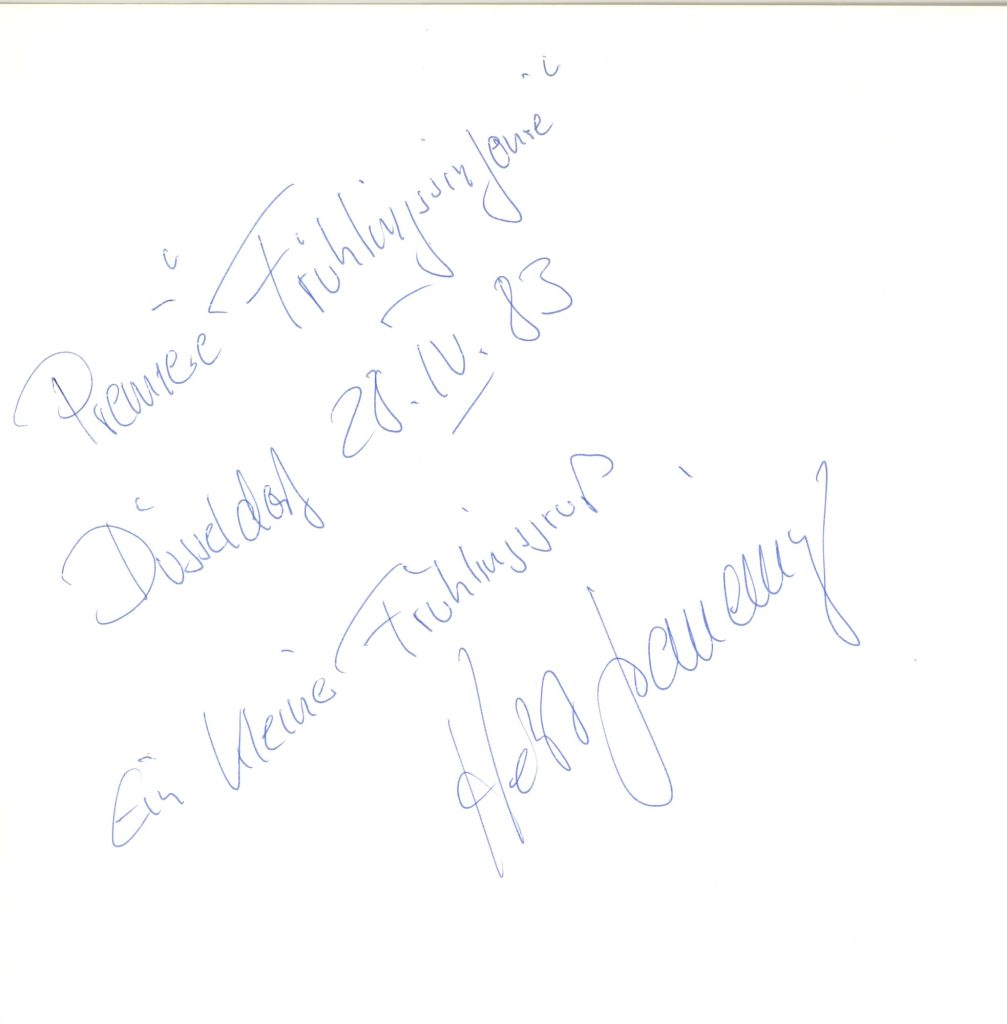 Premiere "Frühlingssinfonie"
Düsseldorf 28. IV. 83
Ein kleiner Frühlingsgruß
Horst